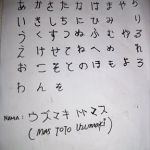 あかさたなはまやらわ
いきしちにひみ り
うくすつぬふむゆる
えけせてねへめ れ
おこそとのほもよろ
わんを
NAMA: ウズマキ トマス
(MAS TOTO Uzumaki)